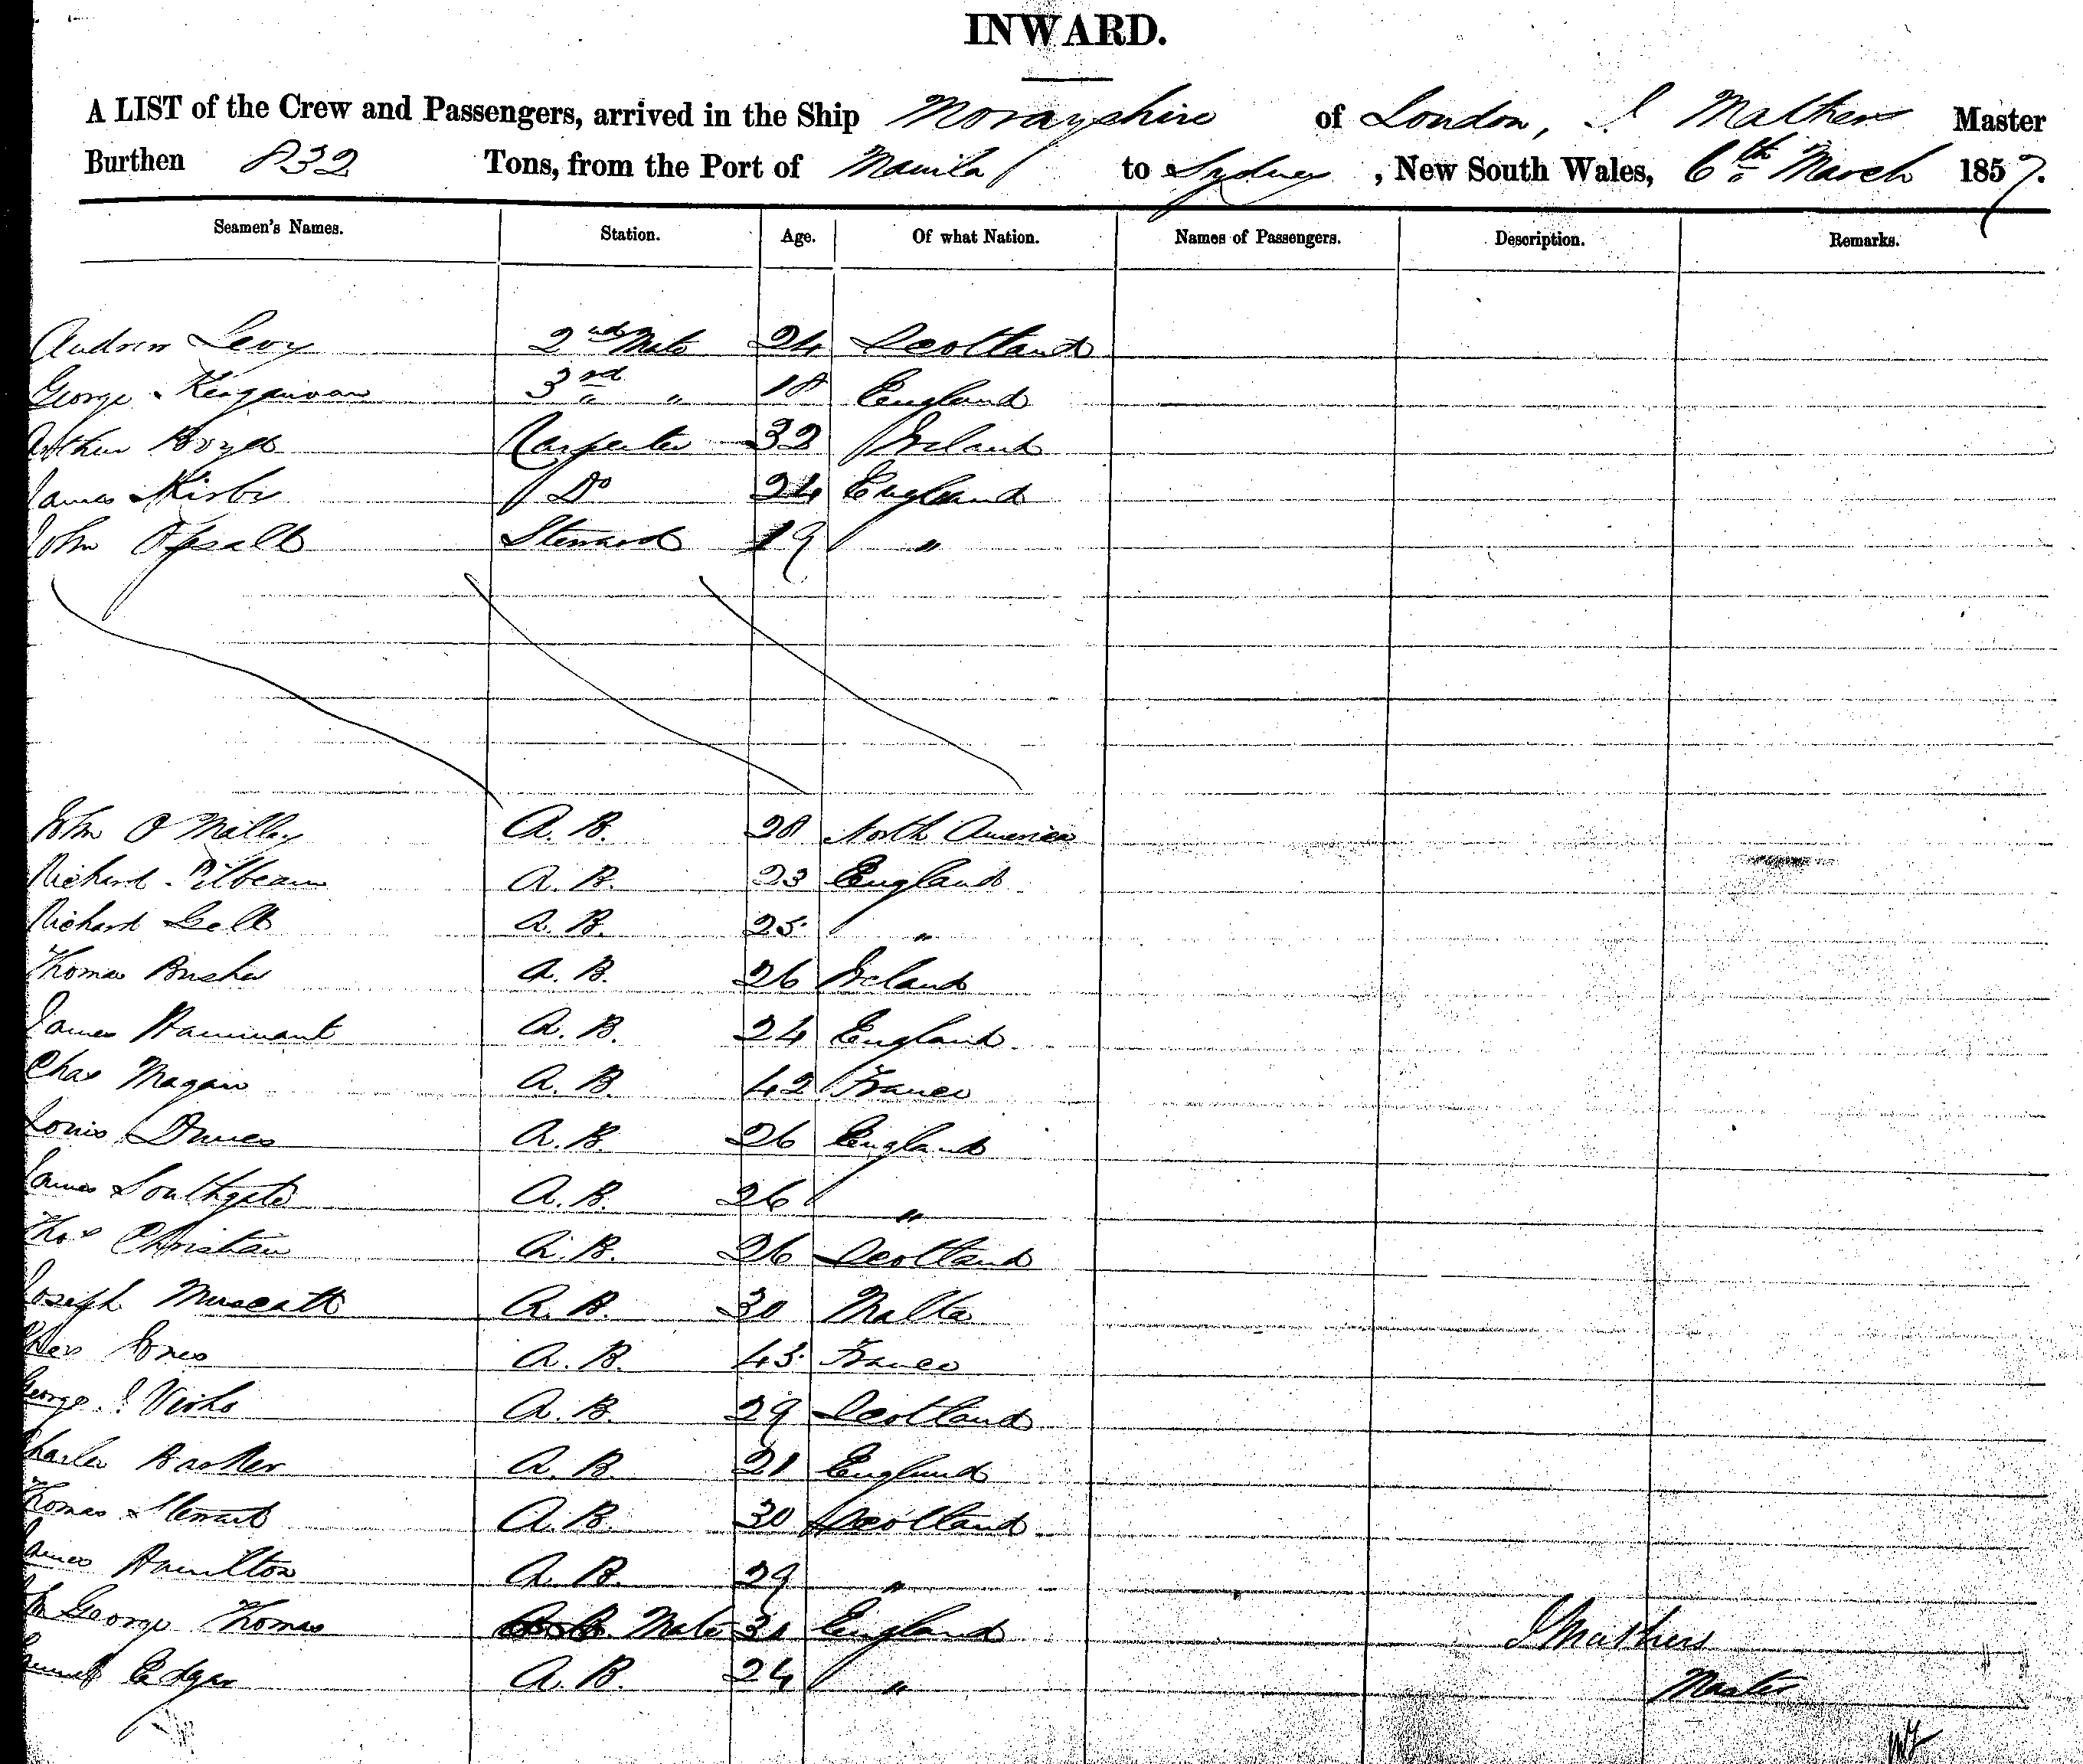 INWARD.
A LIST of the Crew and Passengers, arrived in the Ship Morayshire of London, J Mathers Master
Burthen 832 Tons, from the Port of Manila to Sydney, New South Wales, 6th March 1857.
Seamen's Names. Station. Age. Of what Nation. Names of Passengers. Description. Remarks.
Andrew Levy 2nd Mate 24 Scotland
George 3rd " 18 England
Arthur Boyd Carpenter 32 Ireland
James Kirby Do 24 England
John Steward 19 "
John O Mallay A. B. 28 North America
Richard Pilbeam A. B. 23 England
Richard A. B. 25 "
Thomas Busher A. B. 26 Ireland
James Hammant A. B. 24 England
Chas Magan A. B. 42 France
Louis A. B. 26 England
James Southgate A. B. 26 "
Thos Christian A. B. 26 Scotland
Joseph Muscatt A. B. 30 Malta
Jones A. B. 45 France
George J A. B. 29 Scotland
Charles Barker A. B. 21 England
Thomas Stewart A. B. 30 Scotland
James Hamilton A. B. 29 "
George Thomas Mate 31 England
J Mathers
Edgar A. B. 24 "
Master